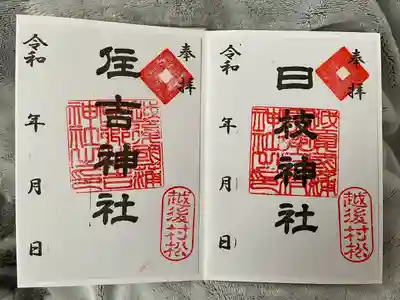 奉拝
日枝神社
越後村松
令和　年　月　日
奉拝
住吉神社
越後村松
令和　年　月　日